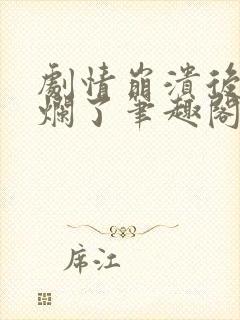 劇情崩潰後
爛了筆趣閣
席江